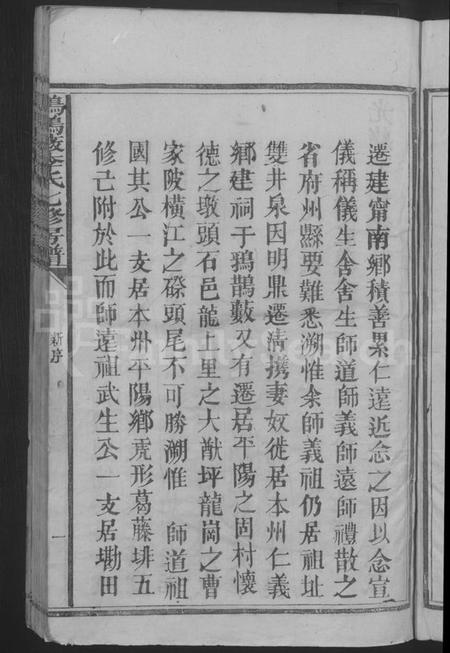 遷建甯南鄉積善累仁遠近念之因以念宣
儀稱儀生舍舍生師道師義師遠師禮散之
省府州縣要難悉溯惟余師義祖仍居祖址
雙井泉因明鼎遷清携妻奴徙居本州仁義
鄉建祠于鴉鵲藪又有遷居平陽之固村懷
德之墩頭石邑龍上里之大猷坪龍崗之曹
家陂橫江之磜頭尾不可勝溯惟 師道祖
國其公一支居本州平陽鄉虎形葛藤排五
修已附於此而師遠祖武生公一支居墈田
李氏七修房譜
新序
一